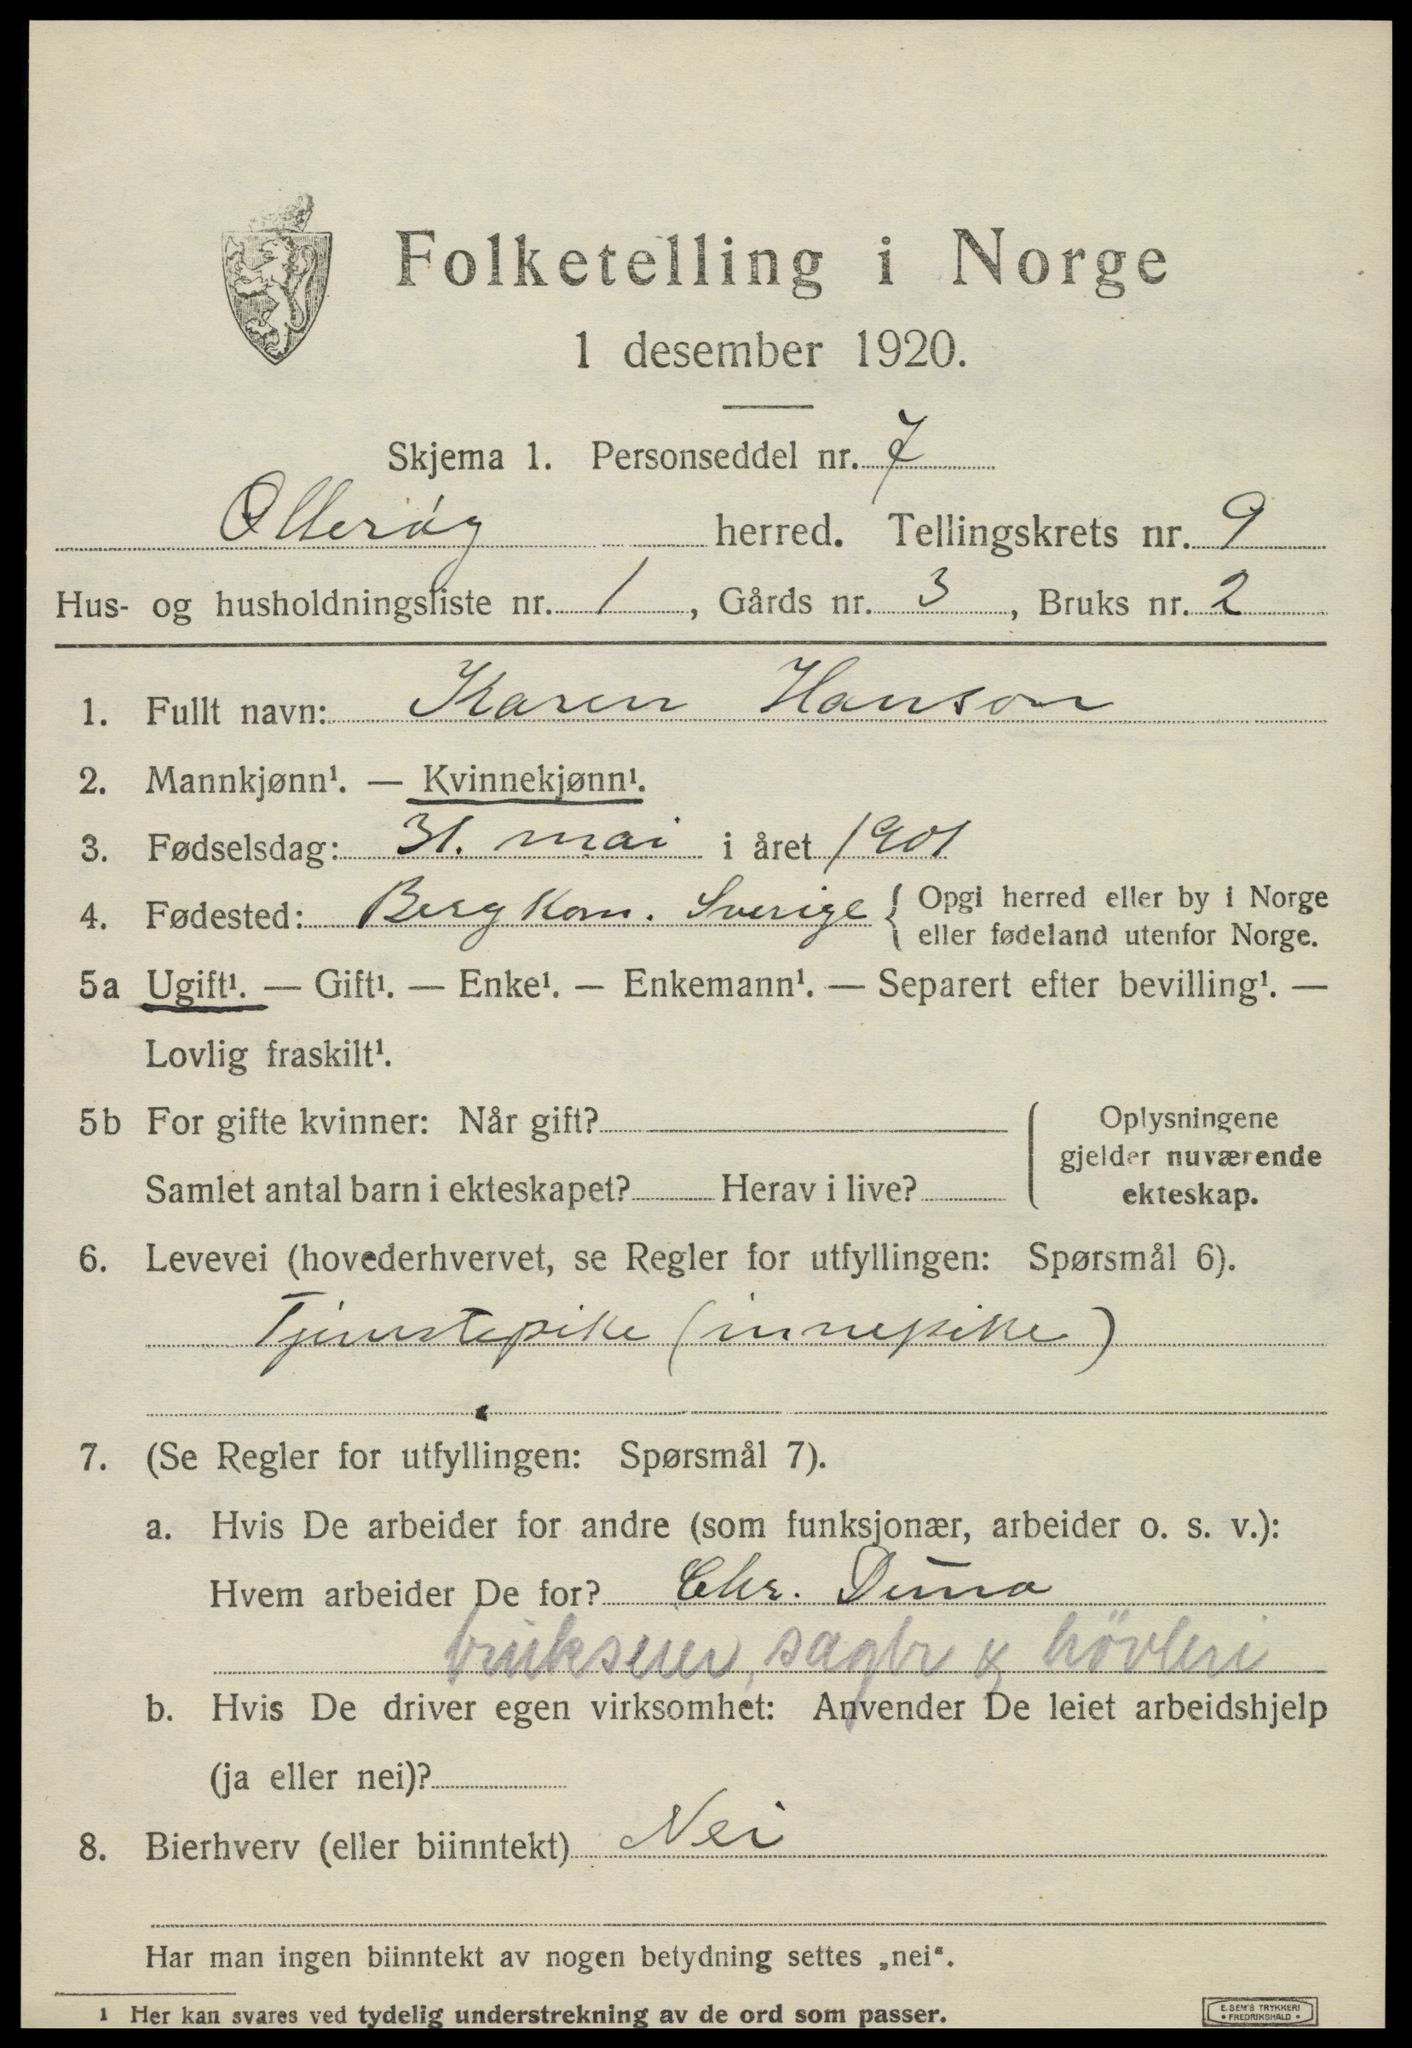 Folketelling i Norge
1 desember 1920.
Skjema 1. Personseddel nr. 7
Otterøy herred. Tellingskrets nr. 9
Hus- og husholdningsliste nr. 1, Gårds nr. 3, Bruks nr. 2
1. Fullt navn: Karen Hanson
2. Mannkjønn¹. — Kvinnekjønn¹.
3. Fødselsdag: 31. mai i året 1901
4. Fødested: Berg Kom. Sverige { Opgi herred eller by i Norge
eller fødeland utenfor Norge.
5a Ugift¹. — Gift¹. — Enke¹. — Enkemann¹. — Separert efter bevilling¹. —
Lovlig fraskilt¹.
5b For gifte kvinner: Når gift?
Samlet antal barn i ekteskapet? Herav i live?
Oplysningene
gjelder nuværende
ekteskap.
6. Levevei (hovederhvervet, se Regler for utfyllingen: Spørsmål 6).
Tjenstepike (innepike)
7. (Se Regler for utfyllingen: Spørsmål 7).
a. Hvis De arbeider for andre (som funksjonær, arbeider o. s. v.):
Hvem arbeider De for? Chr. Duna
brukseier, sagbr & hövleri
b. Hvis De driver egen virksomhet: Anvender De leiet arbeidshjelp
(ja eller nei)?
8. Bierhverv (eller biinntekt) Nei
Har man ingen biinntekt av nogen betydning settes „nei“.
1 Her kan svares ved tydelig understrekning av de ord som passer.
E. SEM'S TRYKKERI
• FREDRIKSHALD •